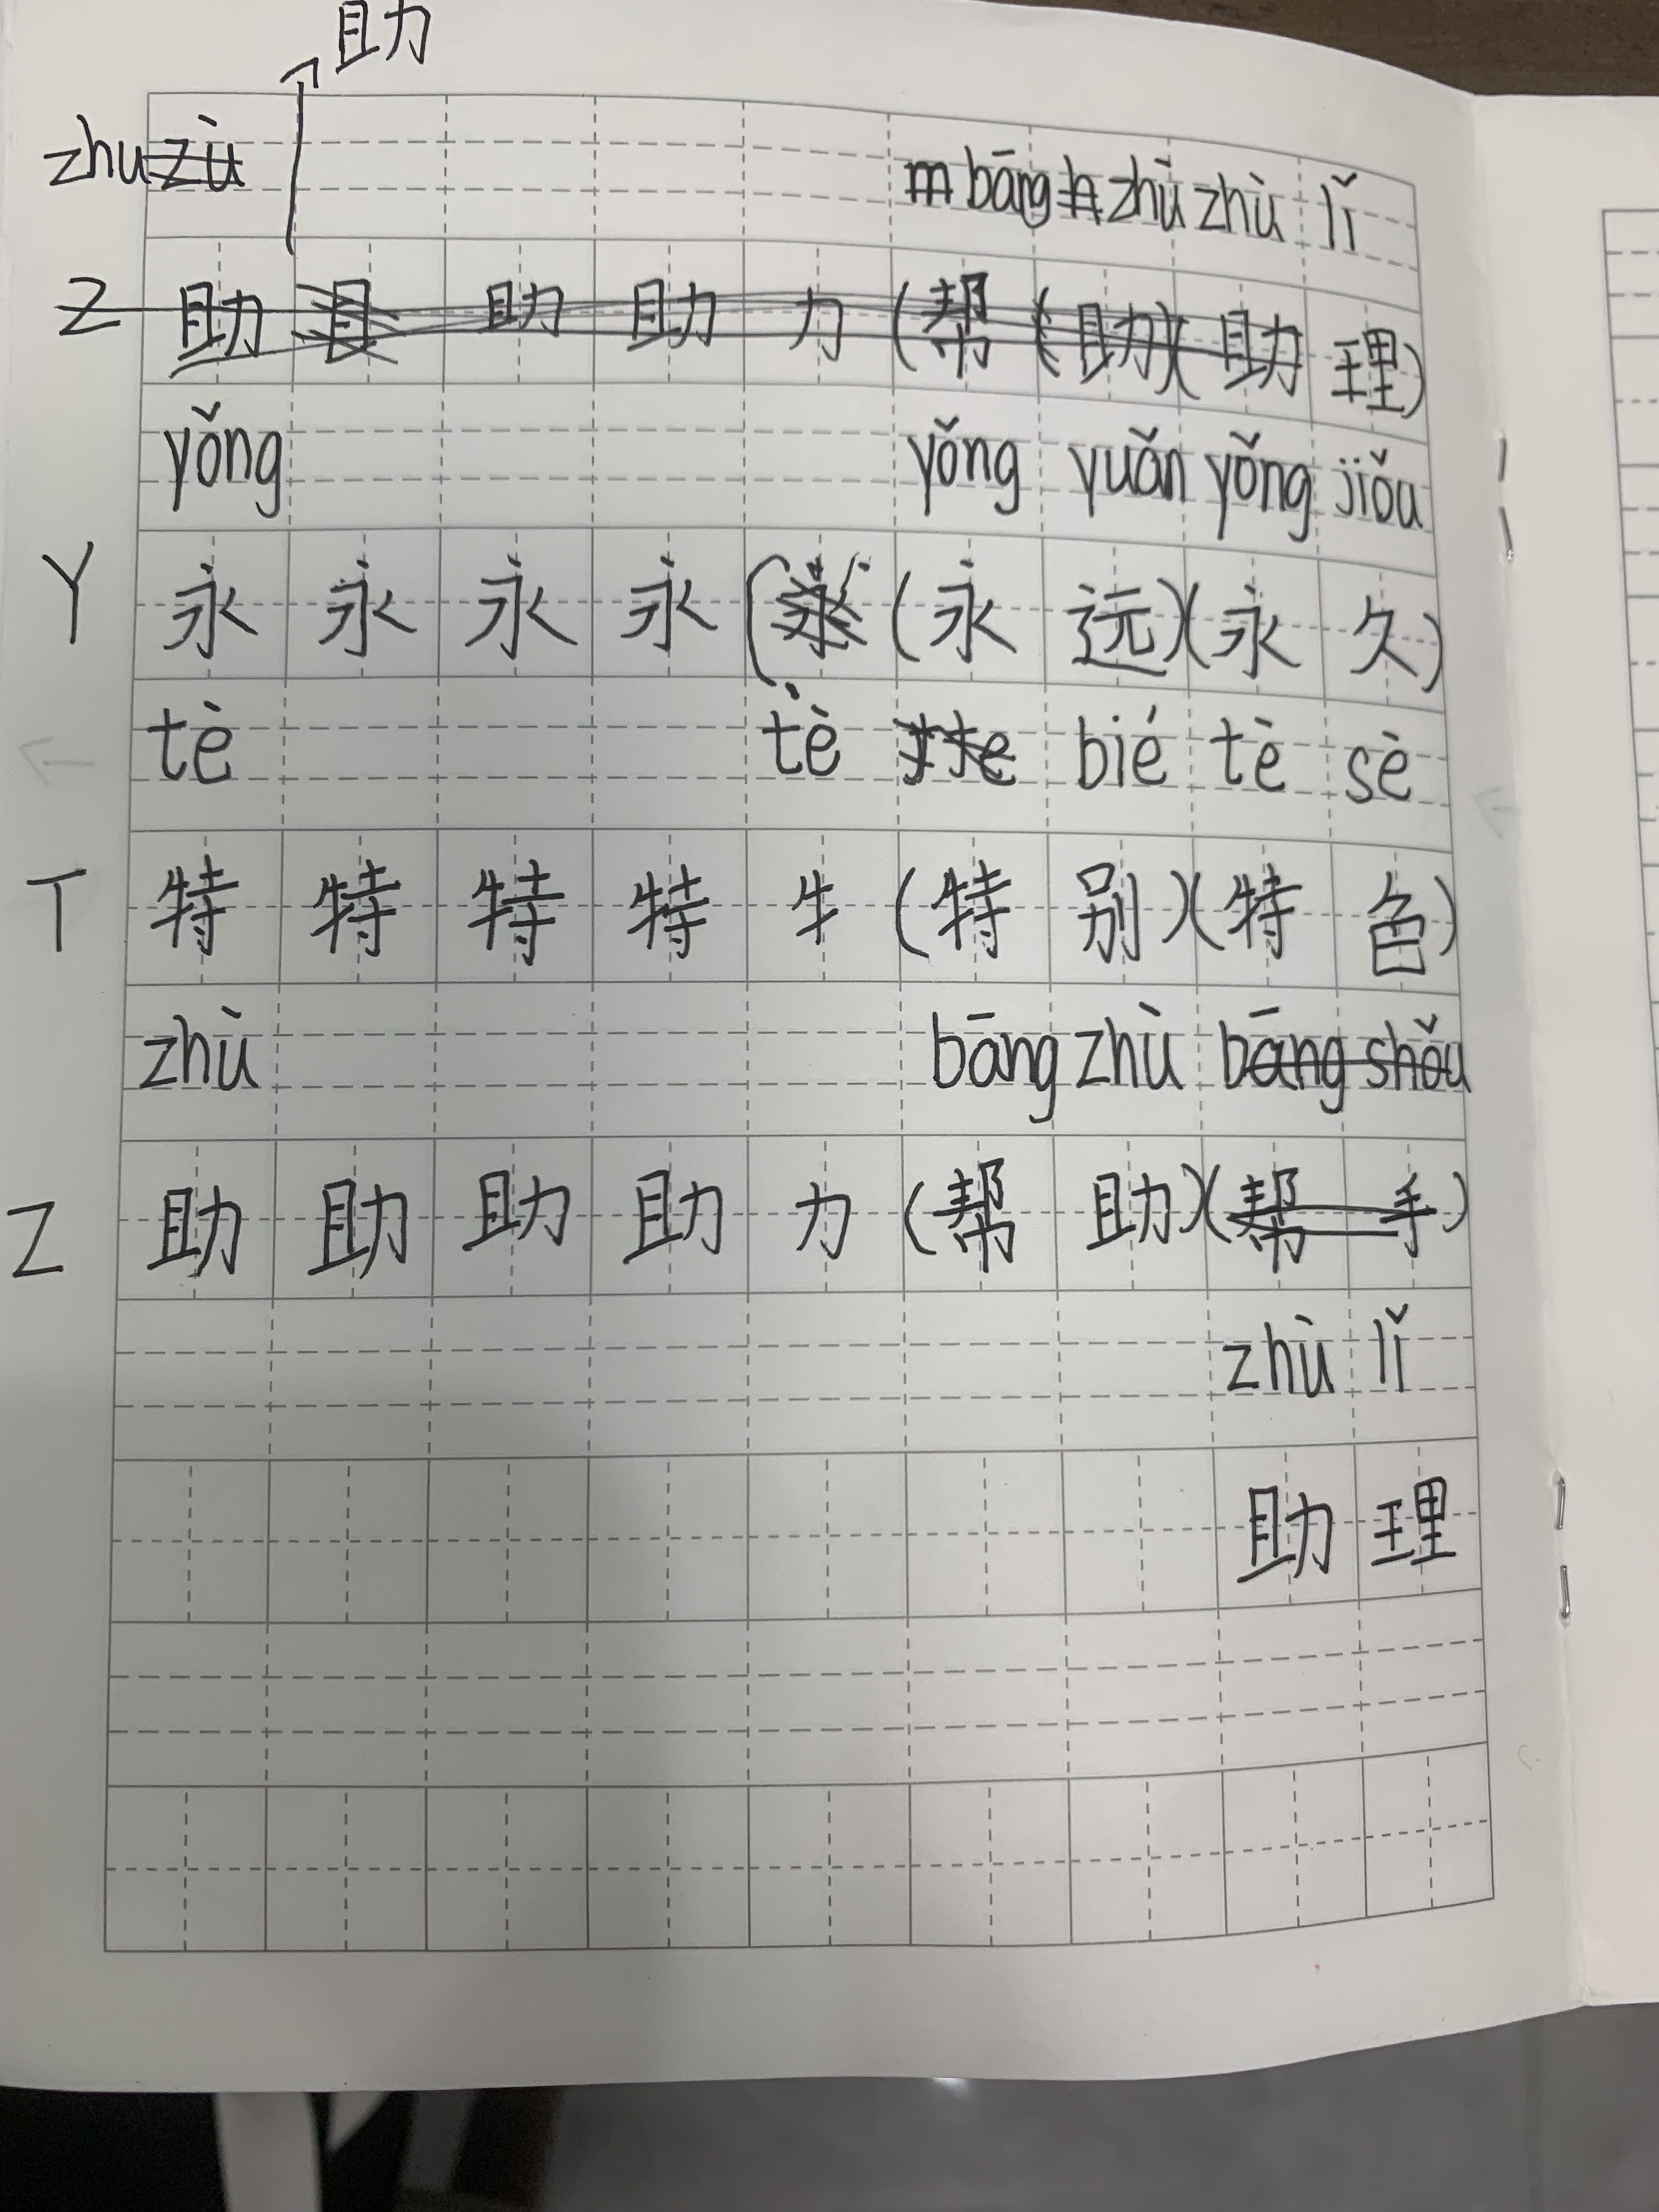 助
zhu zù bāng zhù zhù lǐ
Z 助 助 助 力 (帮 助) (助 理)
yǒng yǒng yuǎn yǒng jiǔu
Y 永 永 永 永 (永 远) (永 久)
tè tè bié tè sè
T 特 特 特 特 牜 (特 别) (特 色)
zhù bāng zhù bāng shǒu
Z 助 助 助 助 力 (帮 助) (帮 手)
zhù lǐ
助 理